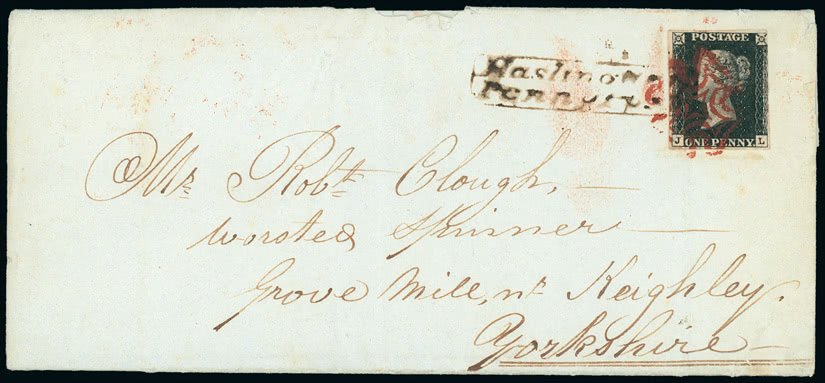 POSTAGE
Penny
J L
ONE PENNY
Mr Robt. Clough,
worsted Spinner
Grove Mill, nr Keighley.
Yorkshire